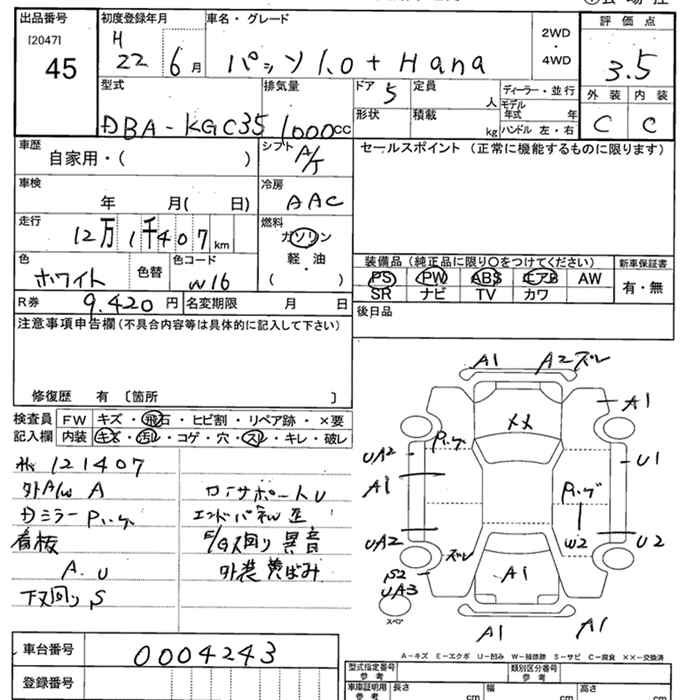 出品番号 初度登録年月 車名・グレード 2WD・4WD 評価点
[2047]
45
H
22 6月 パッソ1.0+Hana 3.5
外装 内装
C C
型式 排気量 ドア 5 定員 人 ディーラー・並行
DBA-KGC35 1000cc 形状 積載 kg モデル年式 年
ハンドル 左・右
車歴 自家用・( ) シフト A/T セールスポイント(正常に機能するものに限ります)
車検 年 月( 日) 冷房 AAC
走行 12万1千407km 燃料 ガソリン
軽・油
( )
色 ホワイト 色替 色コード W16
装備品(純正品に限り○をつけてください) 新車保証書
PS PW ABS エアB AW 有・無
SR ナビ TV カワ
R券 9.420円 名変期限 月 日 後日品
注意事項申告欄(不具合内容等は具体的に記入して下さい)
修復歴 有 〔箇所 〕
検査員記入欄 FW キズ・飛石・ヒビ割・リペア跡・×要
内装 キズ・汚レ・コゲ・穴・スレ・キレ・破レ
121407
外A/W A
Dミラー
看板
A.U
下叉回りS
ロアサポートU
異音
外装黄ばみ
A1 A2ズレ
A1
××
UA2
A1
U1
UA2
ズレ
W2
U2
S2
UA3
A1
スペア
A1
A1
A-キズ E-エクボ U-凹み W-補修跡 S-サビ C-腐食 ××-交換済
車台番号 0004243
登録番号
型式指定番号 参考 類別区分番号 参考
車庫証明用 参考 長さ cm 幅 cm 高さ cm